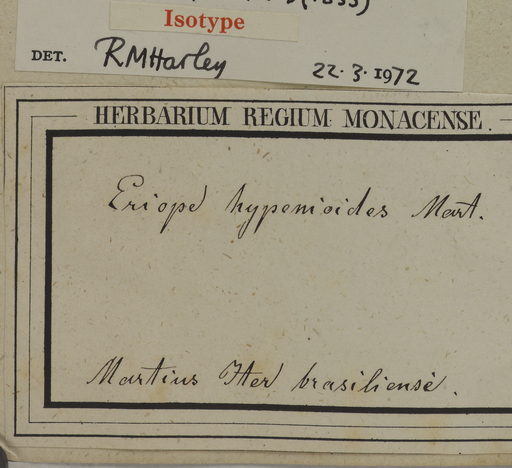 (1833)
Isotype
DET. RMHarley 22.3.1972
HERBARIUM REGIUM MONACENSE.
Eriope hypenioides Mart.
Martius Iter brasiliense.